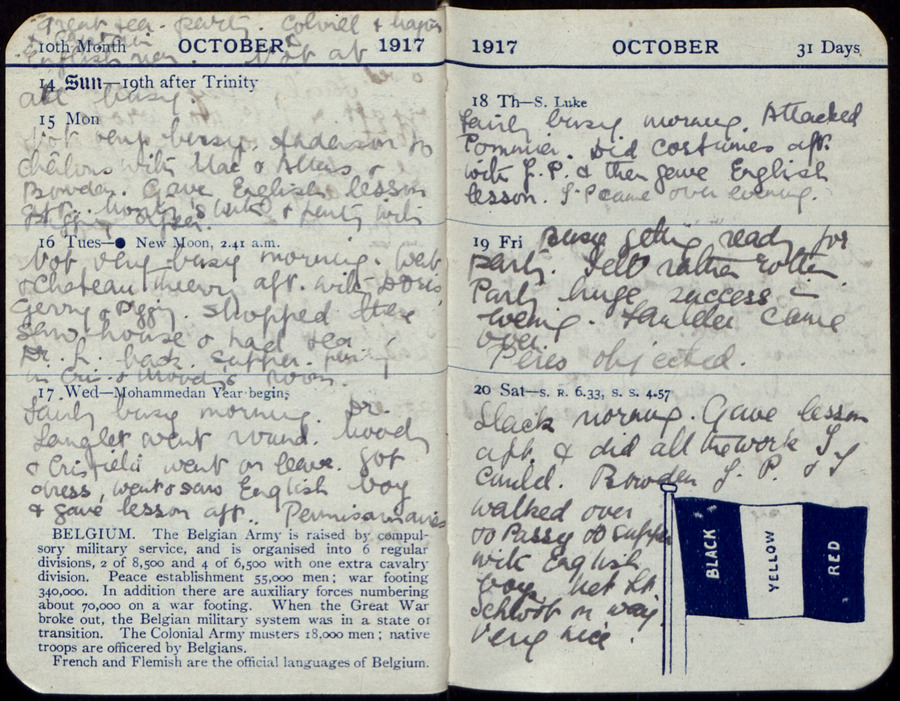 Great tea party. Colvill &
10th Month OCTOBER 1917
English not at
14 Sun—19th after Trinity
all busy.
15 Mon
Not very busy. Anderson to
Châlons with Mac &
Bowden. Gave English lesson
aft. & party with
supper.
16 Tues—● New Moon, 2.41 a.m.
Not very busy morning. Went
Chateau Thierry aft. with Doris
Gerry & Piggy. Stopped there
& had tea
Dr. L. back. Supper party
in Cris. & Moody's room.
17 Wed—Mohammedan Year begins
Fairly busy morning. Dr.
Langlet went round. Moody
& Crisfield went on leave. Got
dress, went & saw English boy
& gave lesson aft. Permissionaires
BELGIUM. The Belgian Army is raised by compul-
sory military service, and is organised into 6 regular
divisions, 2 of 8,500 and 4 of 6,500 with one extra cavalry
division. Peace establishment 55,000 men; war footing
340,000. In addition there are auxiliary forces numbering
about 70,000 on a war footing. When the Great War
broke out, the Belgian military system was in a state of
transition. The Colonial Army musters 18,000 men; native
troops are officered by Belgians.
French and Flemish are the official languages of Belgium.
1917 OCTOBER 31 Days
18 Th—S. Luke
Fairly busy morning. Attacked
Pommier. Did costumes aft.
with J. P. & then gave English
lesson. J P came over evening.
19 Fri Busy getting ready for
party. Felt rather rotten
Party huge success in
evening. came
over.
Pères objected.
20 Sat—S. R. 6.33, S. S. 4.57
Slack morning. Gave lesson
aft. & did all the work I
could. Bowden J. P. & I
walked over
to Passy to supper
with English
boy. Met Lt.
on way.
Very nice!
BLACK
YELLOW
RED